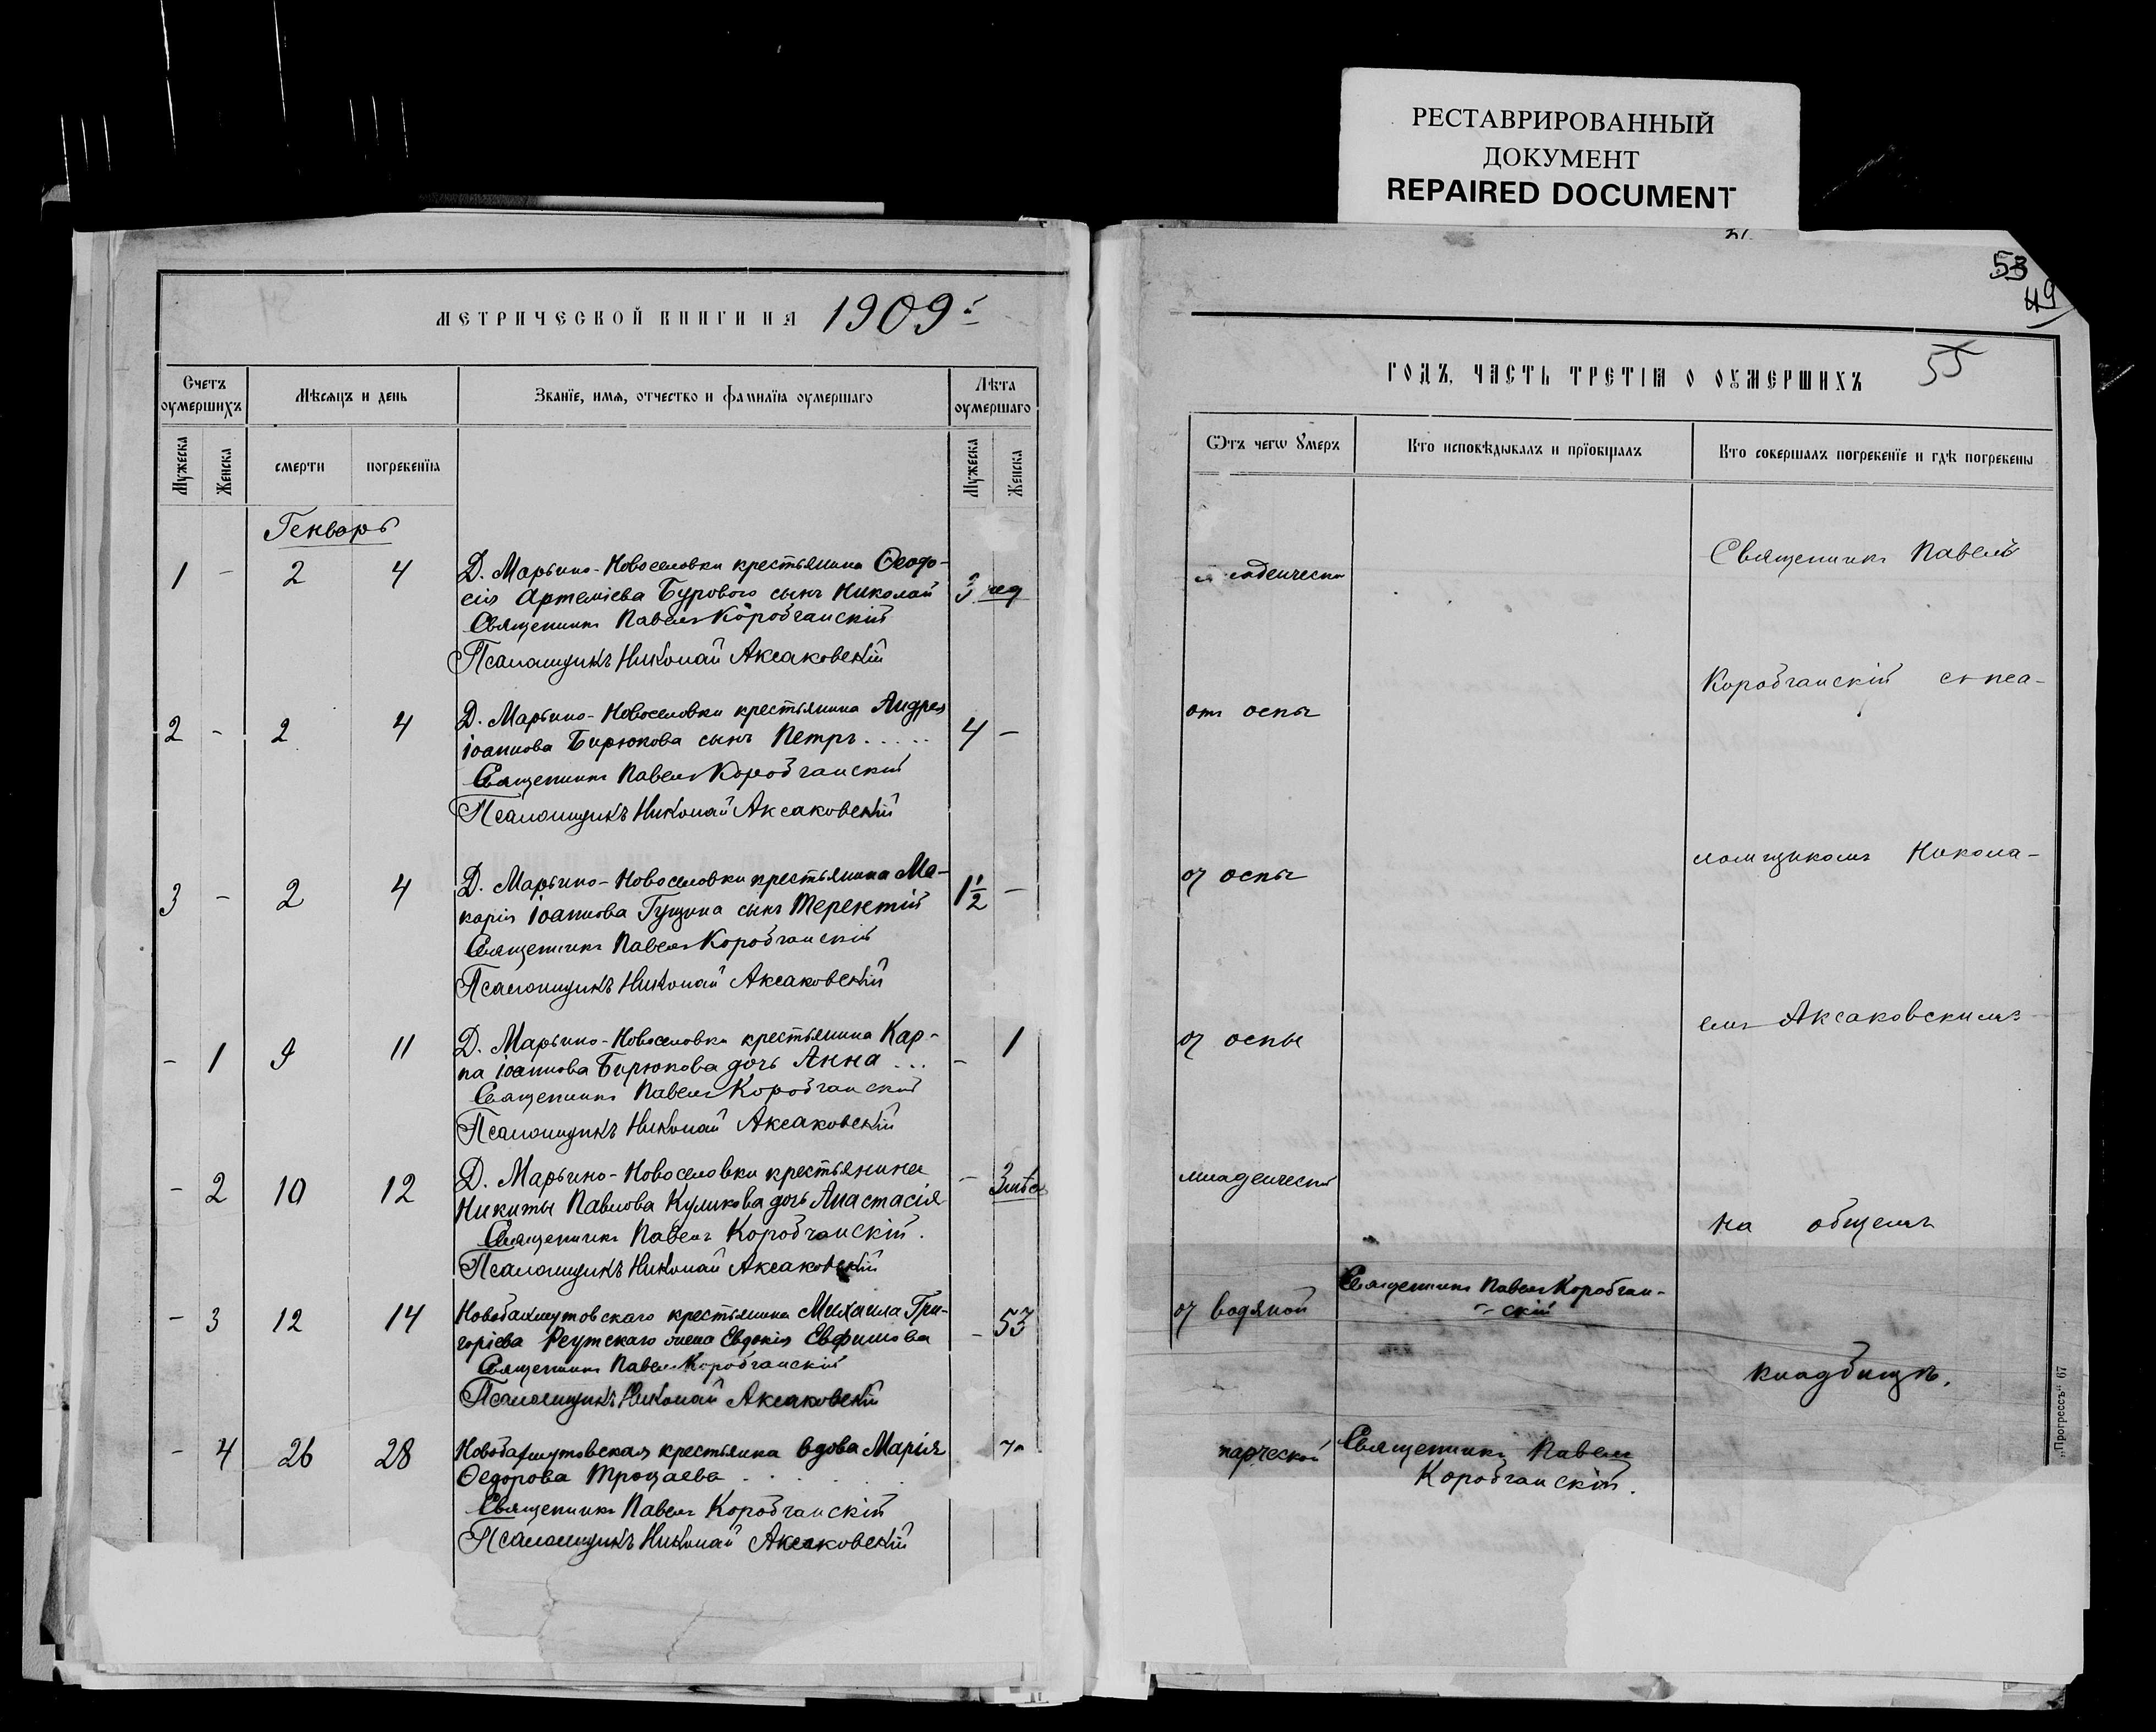 РЕСТАВРИРОВАННЫЙ
ДОКУМЕНТ
REPAIRED DOCUMENT
МЕТРИЧЕСКОЙ КНИГИ НА 1909
Счетъ оумершихъ
Мѣсяцъ и день
Званїе, имѧ, отчество и фамилїѧ оумершаго
Лѣта оумершаго
Мужеска
Женска
смерти
погребенїѧ
Мужеска
Женска
Генварь
1 - 2 4 Д. Марьино-Новоселовки крестьянина Ѳеодо-
сія Артеміева Бурового сынъ Николай 3 нед
Священникъ Павелъ Коробчанскій
Псаломщикъ Николай Аксаковскій
2 - 2 4 Д. Марьино-Новоселовки крестьянина Андрея
Іоаннова Бирюкова сынъ Петръ..... 4 -
Священникъ Павелъ Коробчанскій
Псаломщикъ Николай Аксаковскій
3 - 2 4 Д. Марьино-Новоселовки крестьянина Ма-
карія Іоаннова Гущина сынъ Терентій 1½ -
Священникъ Павелъ Коробчанскій
Псаломщикъ Николай Аксаковскій
- 1 9 11 Д. Марьино-Новоселовки крестьянина Кар-
па Іоаннова Бирюкова дочь Анна ... - 1
Священникъ Павелъ Коробчанскій
Псаломщикъ Николай Аксаковскій
- 2 10 12 Д. Марьино-Новоселовки крестьянина
Никиты Павлова Куликова дочь Анастасія - 3 мѣс
Священникъ Павелъ Коробчанскій.
Псаломщикъ Николай Аксаковскій
- 3 12 14 Новобахмутовскаго крестьянина Михаила Гри-
горіева Реутскаго жена Евдокія Евфимова - 53
Священникъ Павелъ Коробчанскій
Псаломщикъ Николай Аксаковскій
- 4 26 28 Новобахмутовская крестьянка вдова Марія
Ѳедорова
Священникъ Павелъ Коробчанскій
Псаломщикъ Николай Аксаковскій
53
49
55
ГОДЪ, ЧАСТЬ ТРЕТІѦ О ОУМЕРШИХЪ
Ѿтъ чегѡ ꙋмеръ
Кто исповѣдывалъ и прїобщалъ
Кто совершалъ погребенїе и гдѣ погребены
Священникъ Павелъ
Коробчанскій съ пса-
отъ оспы
ломщикомъ Никола-
от оспы
емъ Аксаковскимъ
от оспы
младенческой
на общемъ
от водяной
Священникъ Павелъ Коробчан-
скій
кладбищѣ.
Священникъ Павелъ
Коробчанскій.
„Прогрессъ“ 67